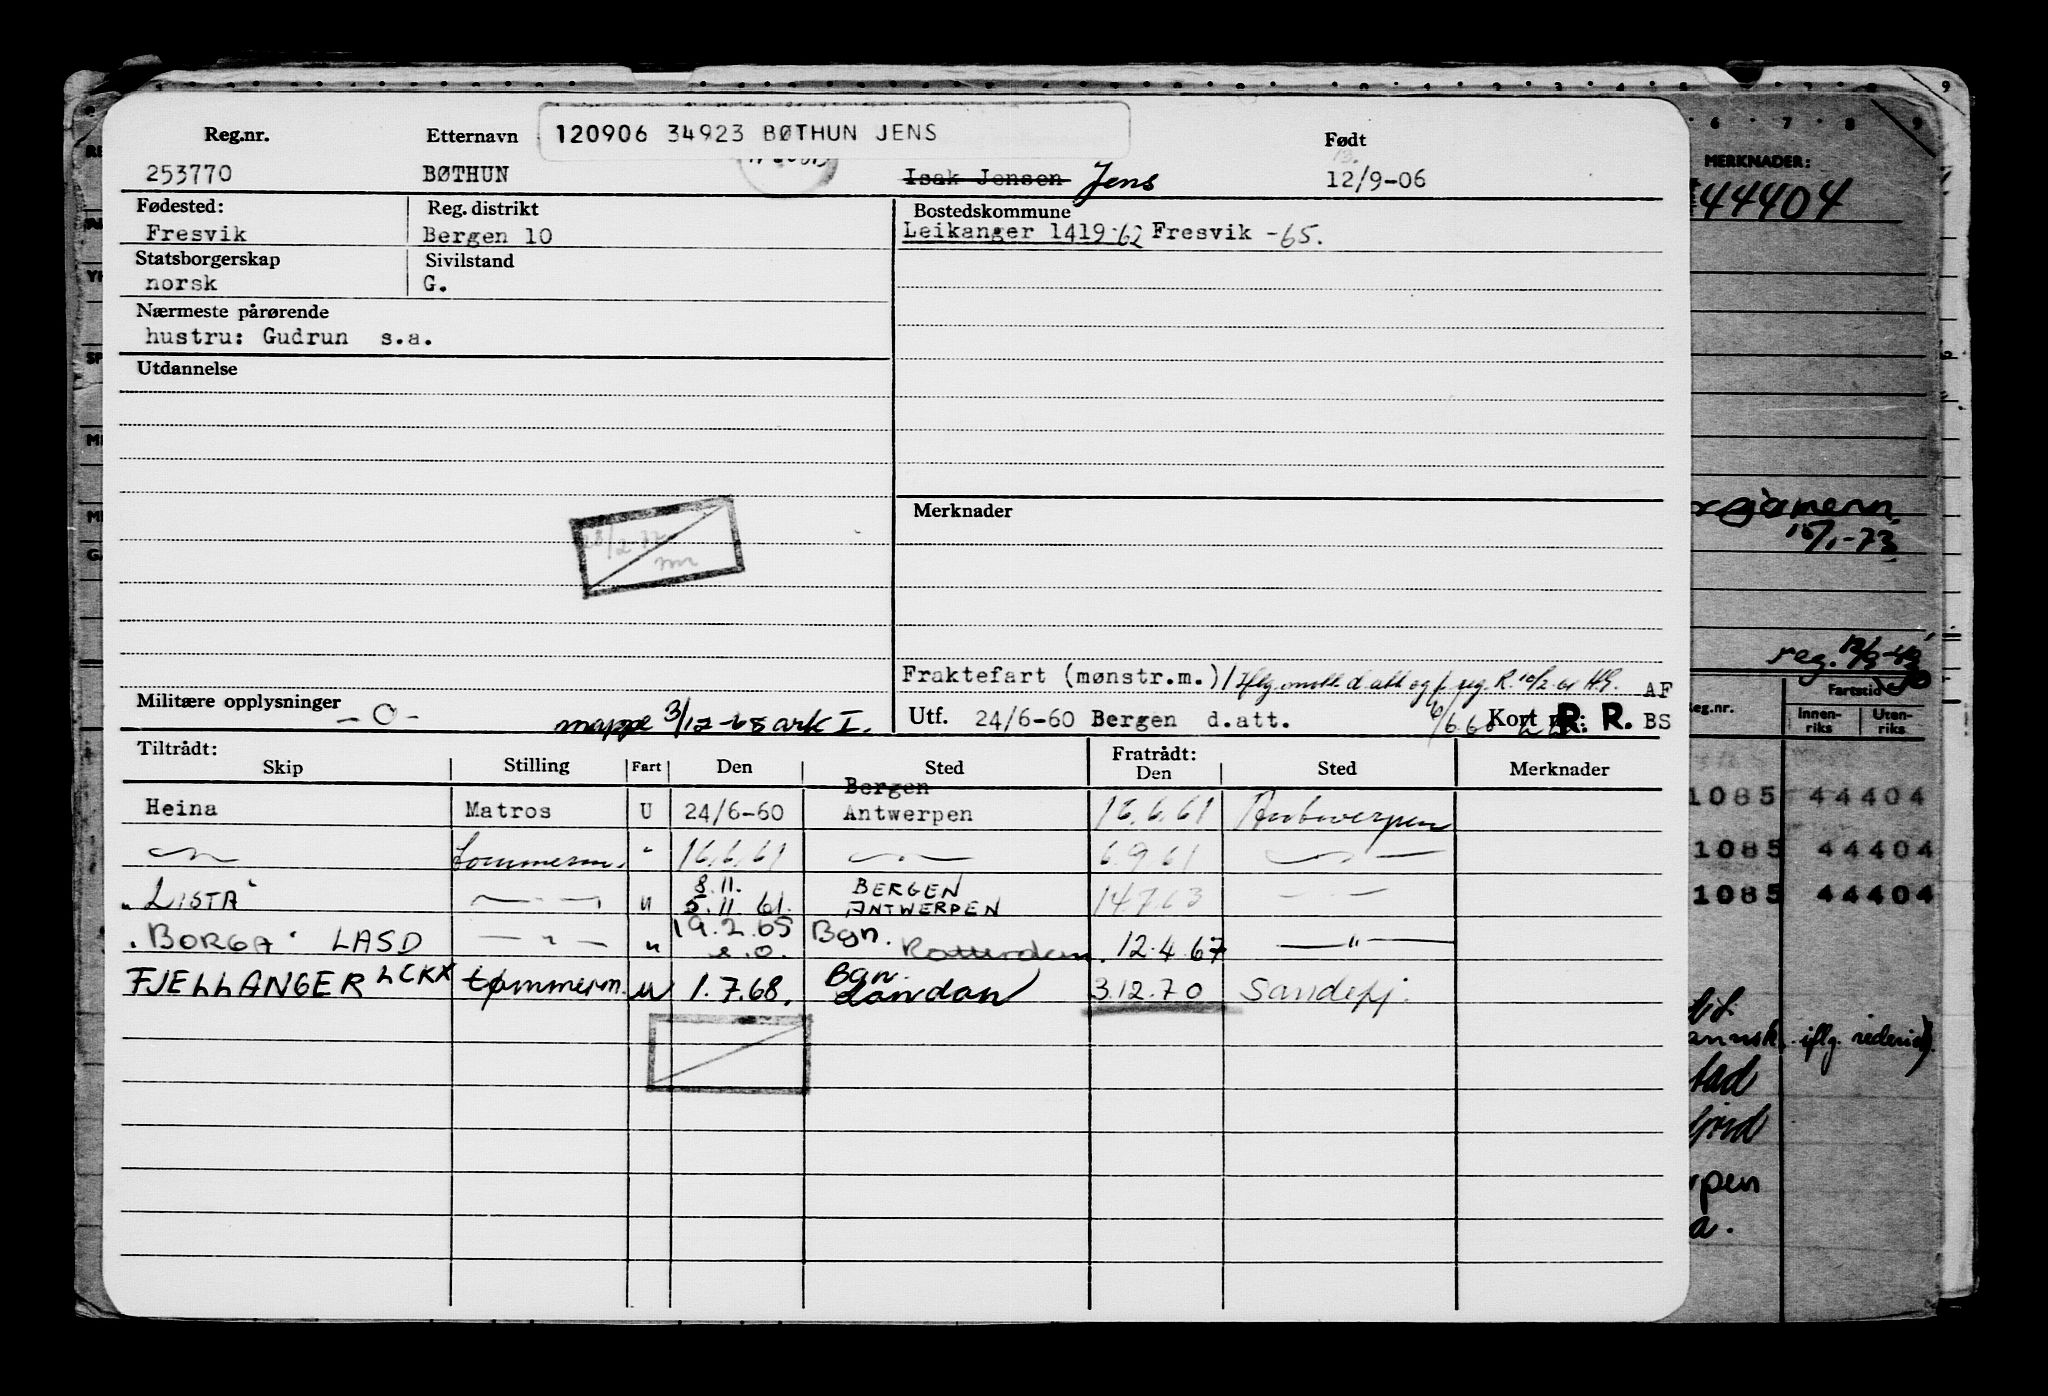 Reg.nr. Etternavn 120906 34923 BØTHUN JENS Født
253770 BØTHUN Isak Jensen Jens 12/9-06
Fødested: Reg. distrikt Bostedskommune
Fresvik Bergen 10 Leikanger 1419-62 Fresvik -65.
Statsborgerskap Sivilstand
norsk G.
Nærmeste pårørende
hustru: Gudrun s.a.
Utdannelse
Merknader
Fraktefart (mønstr.m.) AF
Militære opplysninger -O- mappe 3/12-68 ark I.
Utf. 24/6-60 Bergen d.att. Kort nr: R. R. BS
Tiltrådt: Fratrådt:
Skip Stilling Fart Den Sted Den Sted Merknader
Bergen
Heina Matros U 24/6-60 Antwerpen 16.6.61 Antwerpen
tømmerm. " 16.6.61 6.9.61
8.11. BERGEN
"LISTA" u 5.11 61. ANTWERPEN 14.7.63
"BORGA" LASD — " — " 19.2.65 Bgn. Rotterdam. 12.4.67 — " —
FJELLANGER LCKX tømmerm. u 1.7.68. Bgn. London 3.12.70 Sandefj.
MERKNADER:
44404
15/1-73
reg.
Fartstid
Reg.nr. Innen-riks Uten-riks
1085 44404
1085 44404
1085 44404
iflg. rederiet)